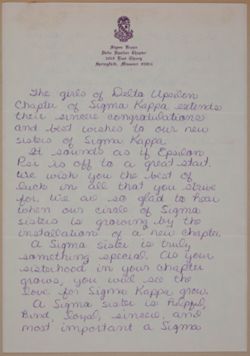 Sigma Kappa
Delta Upsilon Chapter
Springfield, Missouri
The girls of Delta Upsilon
Chapter of Sigma Kappa extends
their sincere congratulations
and best wishes to our new
sisters of Sigma Kappa.
It sounds as if Epsilon
Psi is off to a great start.
We wish you the best of
luck in all that you strive
for. We are so glad to hear
when our circle of Sigma
sisters is growing by the
installation of a new chapter.
A Sigma sister is truly
something special. As your
sisterhood in your chapter
grows, you will see the
love for Sigma Kappa grow.
A Sigma sister is helpful,
kind, loyal, sincere, and
most important a Sigma